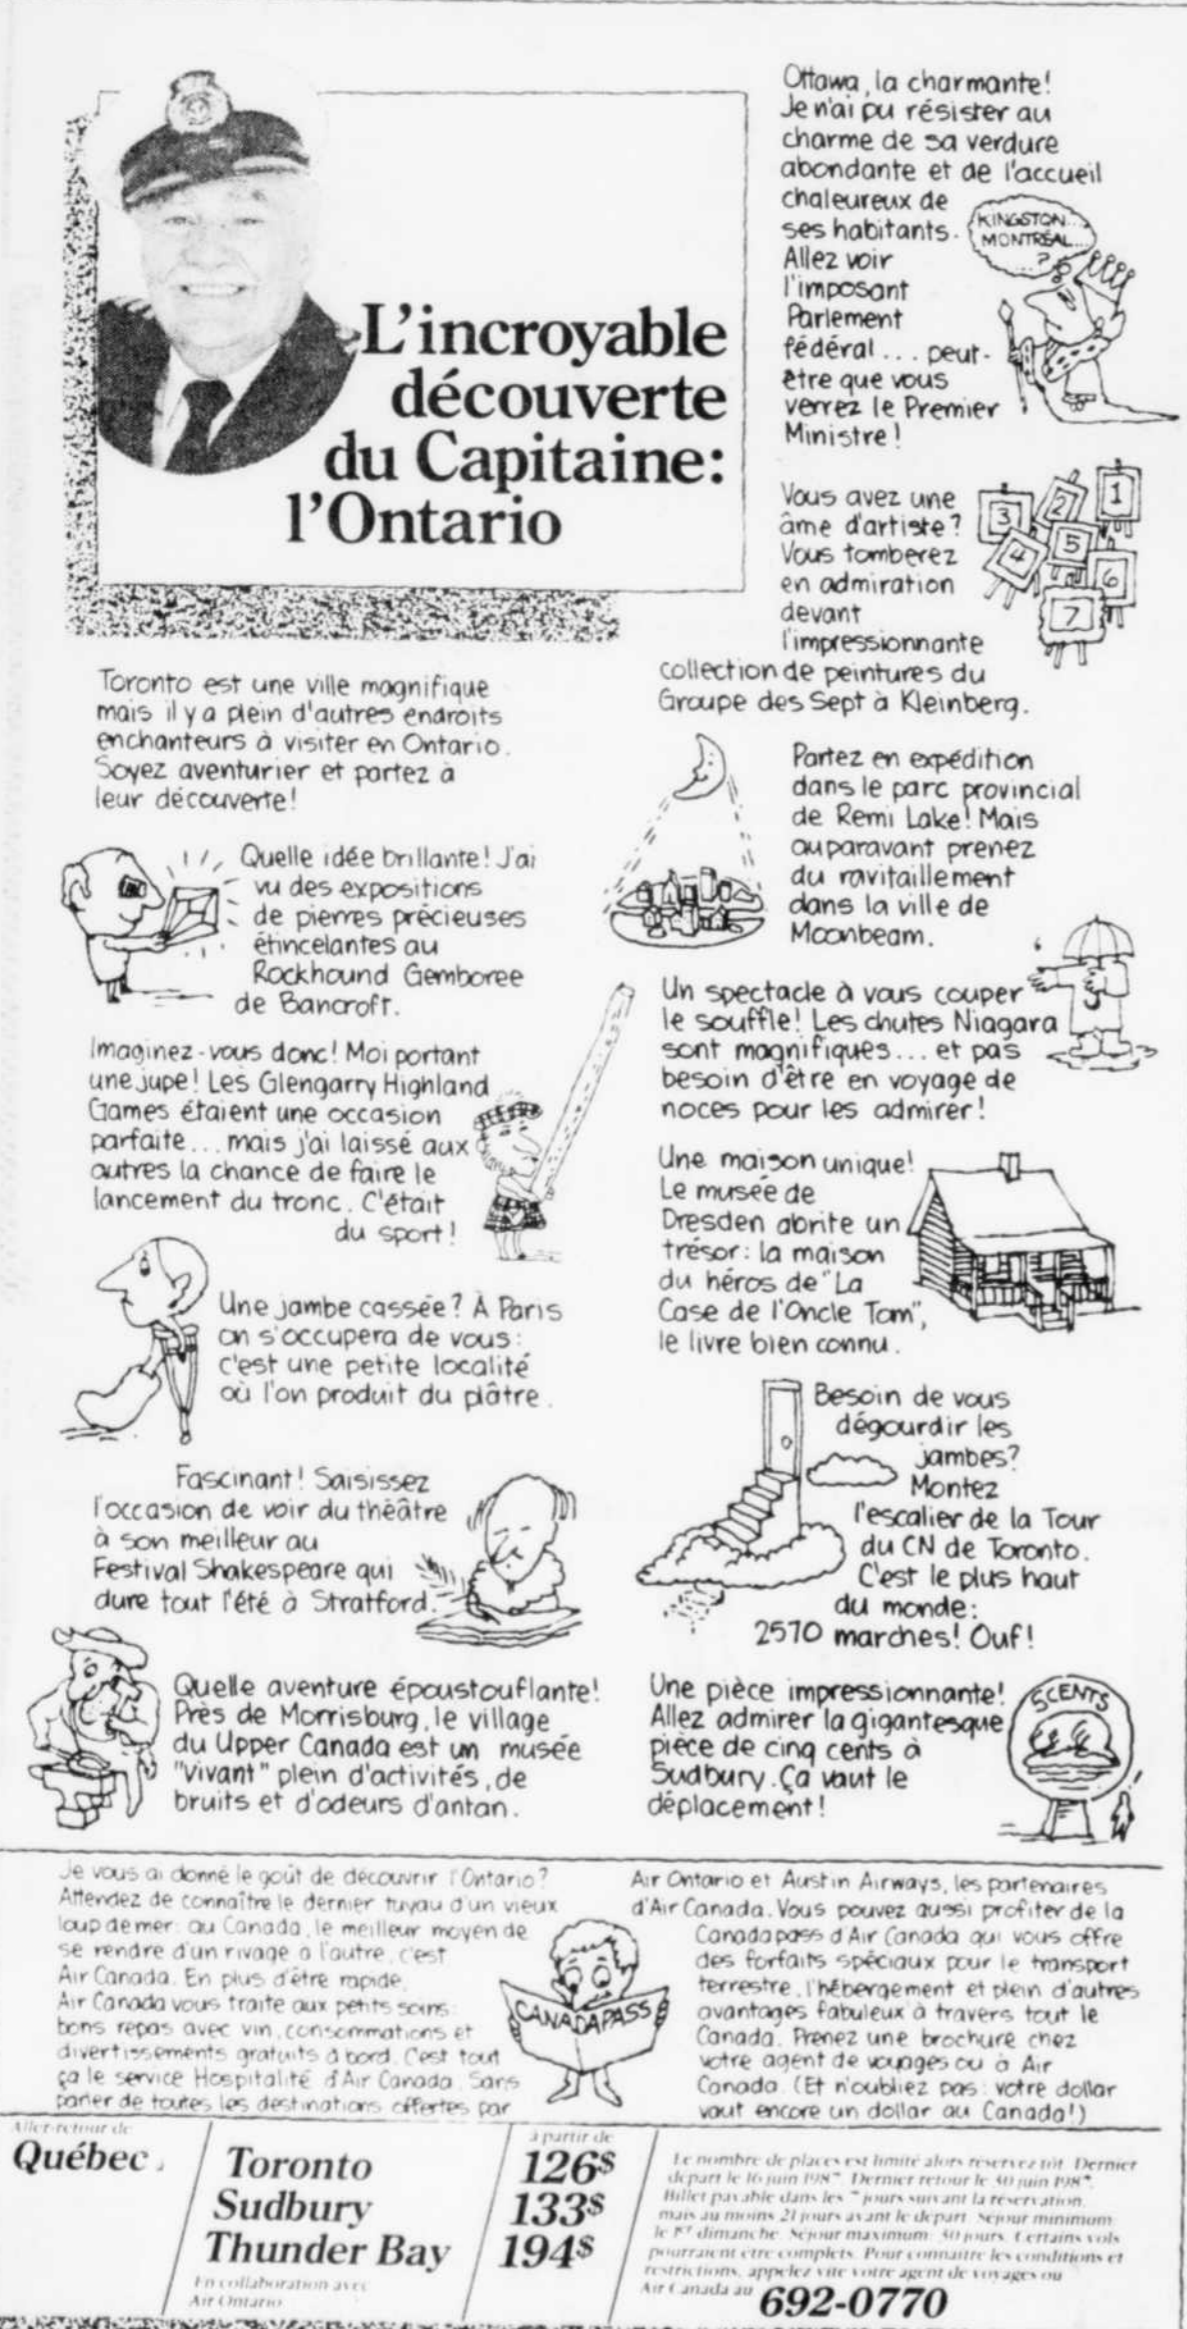 L'incroyable
découverte
du Capitaine:
l'Ontario
Toronto est une ville magnifique
mais il y a plein d'autres endroits
enchanteurs à visiter en Ontario.
Soyez aventurier et partez à
leur découverte!
Quelle idée brillante! J'ai
vu des expositions
de pierres précieuses
étincelantes au
Rockhound Gemboree
de Bancroft.
Imaginez-vous donc! Moi portant
une jupe! Les Glengarry Highland
Games étaient une occasion
parfaite... mais j'ai laissé aux
autres la chance de faire le
lancement du tronc. C'était
du sport!
Une jambe cassée? À Paris
on s'occupera de vous:
c'est une petite localité
où l'on produit du plâtre.
Fascinant! Saisissez
l'occasion de voir du théâtre
à son meilleur au
Festival Shakespeare qui
dure tout l'été à Stratford.
Quelle aventure époustouflante!
Près de Morrisburg, le village
du Upper Canada est un musée
"vivant" plein d'activités, de
bruits et d'odeurs d'antan.
Ottawa, la charmante!
Je n'ai pu résister au
charme de sa verdure
abondante et de l'accueil
chaleureux de
ses habitants.
Allez voir
l'imposant
Parlement
fédéral... peut-
être que vous
verrez le Premier
Ministre!
KINGSTON...
MONTRÉAL...
...?
Vous avez une
âme d'artiste?
Vous tomberez
en admiration
devant
l'impressionnante
collection de peintures du
Groupe des Sept à Kleinberg.
1
2
3
4
5
6
7
Partez en expédition
dans le parc provincial
de Remi Lake! Mais
auparavant prenez
du ravitaillement
dans la ville de
Moonbeam.
Un spectacle à vous couper
le souffle! Les chutes Niagara
sont magnifiques... et pas
besoin d'être en voyage de
noces pour les admirer!
Une maison unique!
Le musée de
Dresden abrite un
trésor: la maison
du héros de "La
Case de l'Oncle Tom",
le livre bien connu.
Besoin de vous
dégourdir les
jambes?
Montez
l'escalier de la Tour
du CN de Toronto.
C'est le plus haut
du monde:
2570 marches! Ouf!
Une pièce impressionnante!
Allez admirer la gigantesque
pièce de cinq cents à
Sudbury. Ça vaut le
déplacement!
5 CENTS
Je vous ai donné le goût de découvrir l'Ontario?
Attendez de connaître le dernier tuyau d'un vieux
loup de mer: au Canada, le meilleur moyen de
se rendre d'un rivage à l'autre, c'est
Air Canada. En plus d'être rapide,
Air Canada vous traite aux petits soins:
bons repas avec vin, consommations et
divertissements gratuits à bord. C'est tout
ça le service Hospitalité d'Air Canada. Sans
parler de toutes les destinations offertes par
CANADAPASS
Air Ontario et Austin Airways, les partenaires
d'Air Canada. Vous pouvez aussi profiter de la
Canadapass d'Air Canada qui vous offre
des forfaits spéciaux pour le transport
terrestre, l'hébergement et plein d'autres
avantages fabuleux à travers tout le
Canada. Prenez une brochure chez
votre agent de voyages ou à Air
Canada. (Et n'oubliez pas: votre dollar
vaut encore un dollar au Canada!)
Aller-retour de
Québec
à partir de
Toronto 126$
Sudbury 133$
Thunder Bay 194$
En collaboration avec
Air Ontario
Le nombre de places est limité alors réservez tôt. Dernier
départ le 16 juin 1987. Dernier retour le 30 juin 1987.
Billet payable dans les 7 jours suivant la réservation,
mais au moins 21 jours avant le départ. Séjour minimum:
le 1er dimanche. Séjour maximum: 30 jours. Certains vols
pourraient être complets. Pour connaître les conditions et
restrictions, appelez vite votre agent de voyages ou
Air Canada au 692-0770